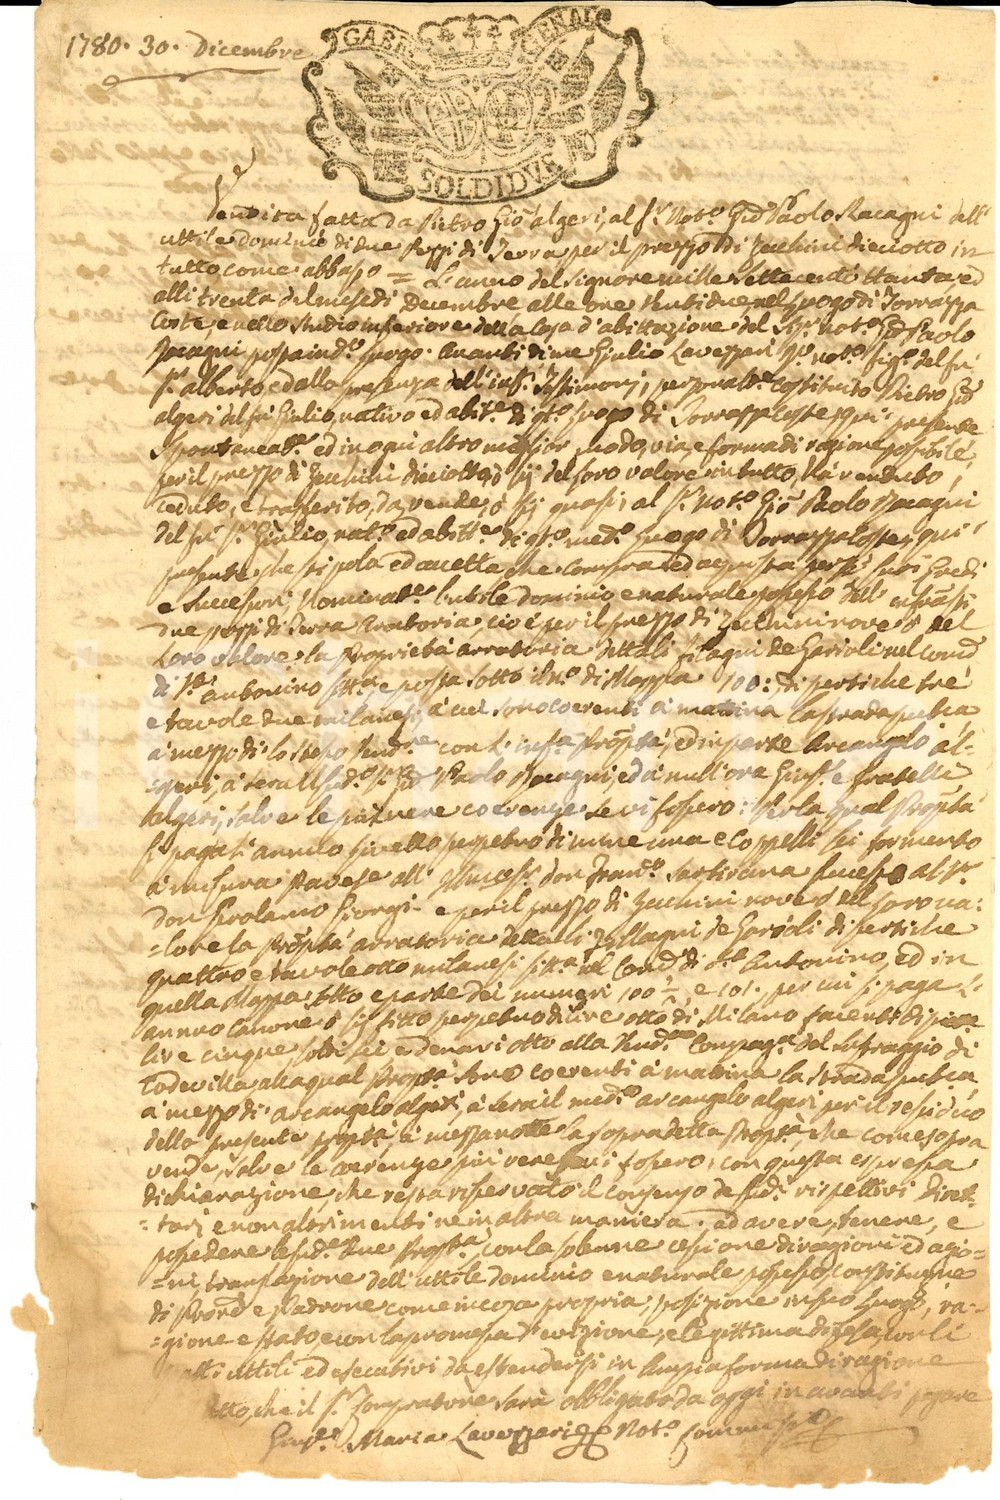 1780. 30. Dicembre
GABEL GENAL
SOLDI DVE
Vendita fatta da Pietro Gio Algeri, al Sr. Noto. Gio Paolo Racagni dell'
uttile dominio di due Pezzi di Terra per il prezzo di Zecchini dieciotto in
tutto come abbasso = L'anno del Signore mille settecento ottanta, ed
alli trenta del mese di Decembre alle ore ventidue nel Luogo di Torrazza
Coste, e nello studio inferiore della Casa d'abittazione del Sr. Noto. Gio Paolo
Racagni posta in do. Luogo. Avanti di me Giulio Lavezzari Noto. figo. del fu
Sr. Alberto, ed alla presenza dell' inf. Testimonj, personalte. costituito Pietro Gio
Algeri del fu Giulio, nativo ed abite. di qto. Luogo di Torrazza Coste, qui presente
Spontaneate. ed in ogni altro miglior modo, via, e forma di ragione possibile,
per il prezzo di Zecchini dieciotto, del loro valore in tutto, ha venduto,
ceduto, e trasferito, da, vende, quasi, al Sr. Noto. Gio Paolo Racagni
del fu Sr. Giulio, nato. ed abitte. di qto. medo. Luogo di Torrazza Coste, qui
presente che stipola ed accetta, che compra ed acquista per se suoi Eredi
e Successori, Nominate. l'utile dominio e naturale possesso dell' infrasti
due pezzi di Terra Aratoria, cioè per il prezzo di Zecchini nove del
loro valore la Proprietà arratoria detta li Zilagni de Garioli nel Comd
di St. Antonino sitta, e posta sotto il No. di Mappa 100: di pertiche tre
e tavole due milanesi, a cui sono coerenti a mattina la strada publica
a mezzo di lo stesso Vende. con l' infa. Proptà, ed in parte Arcangelo Al-
geri, a sera il sudo. Sr. Gio Paolo Racagni, ed a null'ora Giuse. e fratelli
Algeri, salve le più vere coerenze se vi fossero: Per la qual Proptà
si paga l' annuo livello perpetuo di mine una e Coppelli sei formento
a misura Pavese all' don Franco. Sartirana al Sr.
don Girolamo Giorgi. e per il prezzo di Zecchini nove del loro va:
=lore la Proptà arratoria detta li Zillagni de Garioli di pertiche
quattro e tavole otto milanesi sitta nel Comd di St. Antonino, ed in
quella Mappa sotto e parte dei numeri 100 1/2, e 101. per cui si paga l'
annuo canone fitto perpetuo di lire otto di Milano facenti di
lire cinque, soldi sei e denari otto alla Vendo. Compaga. del Suffraggio di
Codevilla alla qual Proptà sono coerenti a mattina la strada publica
a mezzo di Arcangelo Algeri, a sera il medo. Arcangelo Algeri per il residuo
della presente proptà, a mezzanotte la sopradetta Proptà che come sopra
vende, salve le coerenze più vere se vi fossero, con questa espressa
dichiarazione, che resta riservato il consenso de sudi. rispettivi Diret-
=tarj e non altrimenti ne in altra maniera. ad avere, tenere, e
possedere le sude. due Propta. con la solenne cessione di ragioni ed agio=
=ni, translazione dell' uttile dominio e naturale possesso, constituzione
di Procre e Padrone come in cosa propria, posizione in suo Luogo, ra-
=gione e stato e con la promessa d'evizione, e legittima difesa con li
patti uttili ed esecutivi da estendersi in ampia forma di ragione
che il Sr. Compratore sarà obbligato da oggi in avanti pagare
Giuse. Maria Lavezzari Noto.